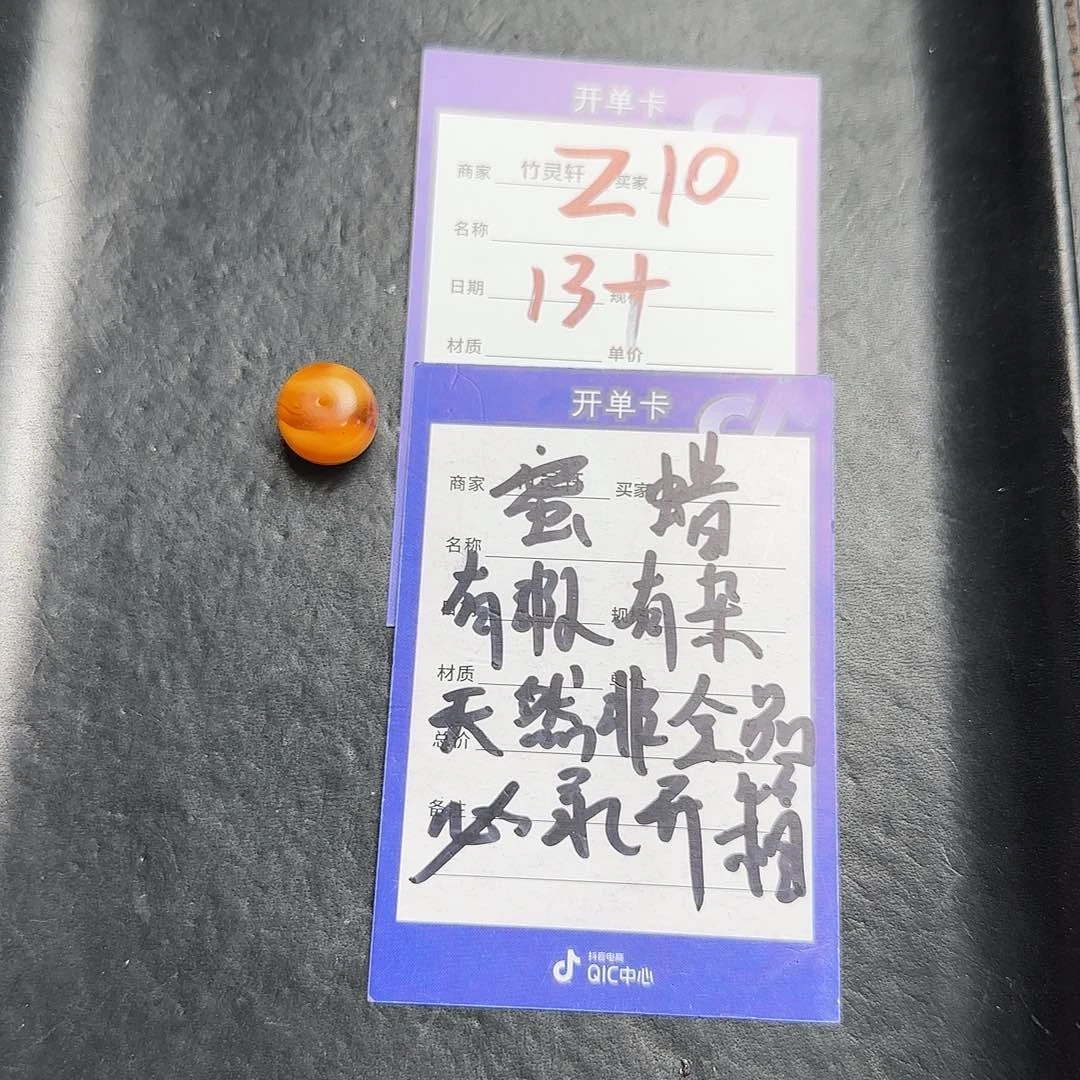 开单卡
商家 竹灵轩 买家
Z10
名称
13+
日期 规格
材质 单价
开单卡
商家 买家
蜜蜡
名称
有瑕有杂
规格
材质 单价
天然非全品
总价
必录开箱
备注
抖音电商
QIC中心